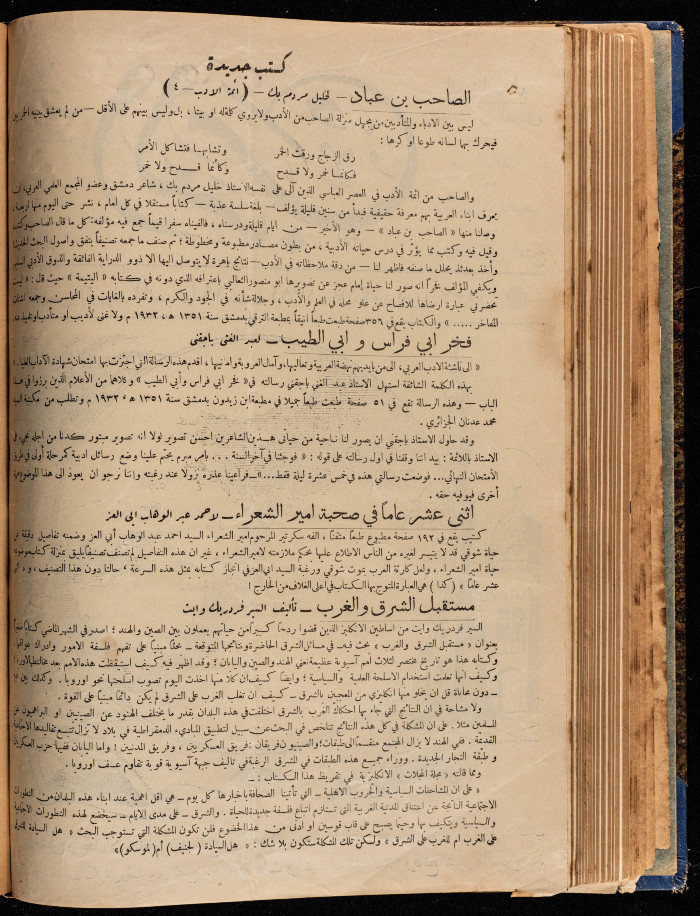 كتب جديدة
الصاحب بن عباد — لخليل مردم بك — ( أئمة الادب — ٤ )
ليس بين الادباء والمتأدبين من يجهل منزلة الصاحب من الأدب ولا يروي كلمة له او بيتا ، بل وليس بينهم على الأقل — من لم يعشق بيتيه
فيحرك بهما لسانه طوعا او كرها :
رق الزجاج ورقت الخمر وتشابها فتشاكل الأمر
فكأنما خمر ولا قدح وكأنما قدح ولا خمر
والصاحب من أئمة الأدب في العصر العباسي الذين آلى على نفسه الاستاذ خليل مردم بك ، شاعر دمشق وعضو المجمع العلمي العربي، ان
يعرف ابناء العربية بهم معرفة حقيقية فبدأ من سنين قليلة يؤلف — بلغة سلسة عذبة — كتاباً مستقلا في كل امام ، نشر حتى اليوم منها اربعة
وصلنا منها « الصاحب بن عباد » — وهو الأخير — من ايام قليلة ودرسناه ، فالفيناه سفرا قيماً جمع فيه مؤلفه : كل ما قال الصاحب وكتب
وقيل فيه وكتب مما يؤثر في درس حياته الأدبية ، من بطون مصادر مطبوعة ومخطوطة ؛ ثم صنف ما جمعه تصنيفاً يتفق واصول البحث
وأخذ بعدئذ يحلل ما صنفه فاظهر لنا — من دقة ملاحظاته في الأدب — نتائج باهرة لا يتوصل اليها الا ذوو الدراية الفائقة والذوق الأدبي
ويكفي المؤلف فخراً انه صور لنا حياة إمام عجز عن تصويرها ابو منصور الثعالبي باعترافه الذي دونه في كتابه « اليتيمة » حيث قال : « ليست
تحضرني عبارة ارضاها للافصاح عن علو محله في العلم والأدب ، وجلالة شأنه في الجود والكرم ، وتفرده بالغايات في المحاسن وجمعه اشتات
المفاخر ..... » والكتاب يقع في ٣٥٦ صفحة طبعت طبعاً انيقاً بمطبعة الترقي بدمشق سنة ١٣٥١ ه ، ١٩٣٢ م ولا غنى لأديب او متأدب
فخر ابي فراس و ابي الطيب — لعبد الغني باجقني
« الى ناشئة الادب العربي، الى من بايديهم نهضة العربية وتعاليها، وآمال العروبة وامانيها ، اقدم هذه الرسالة التي اجتزت بها امتحان شهادة الآداب العليا »
بهذه الكلمة الشائقة استهل الاستاذ عبد الغني باجقني رسالته في « فخر أبي فراس وأبي الطيب » وكلاهما من الأعلام الذين برزوا في هذا
الباب — وهذه الرسالة تقع في ٥١ صفحة طبعت طبعاً جميلا في مطبعة ابن زيدون بدمشق سنة ١٣٥١ ه ، ١٩٣٢ م وتطلب من مكتبة السيد
محمد عدنان الجزائري .
وقد حاول الاستاذ باجقني ان يصور لنا ناحية من حياتي هذين الشاعرين احسن تصوير لولا انه تصوير مبتور كدنا من اجله
الاستاذ باللائمة : بيد اننا وقفنا في اول رسالته على قوله : « فوجئنا في آخر السنة ... بأمر مبرم يحتم علينا وضع رسائل ادبية كمرحلة أولى في طريق
الأمتحان النهائي... فوضعت رسالتي هذه في خمس عشرة ليلة فقط... » — فراعينا عذره نزولا عند رغبته وإننا نرجو ان يعود الى هذا الموضوع مرة
أخرى فيوفيه حقه .
اثنى عشر عاماً في صحبة امير الشعراء — لاحمد عبد الوهاب ابي العز
كتيب يقع في ١٩٢ صفحة مطبوع طبعاً متقناً ، الفه سكرتير المرحوم امير الشعراء السيد احمد عبد الوهاب أبي العز وضمنه تفاصيل دقيقة عن
حياة شوقي قد لا يتيسر لغيره من الناس الاطلاع عليها بحكم ملازمته لامير الشعراء ، غير ان هذه التفاصيل لم تصنف تصنيفاً يليق بمنزلة كتاب
حياة امير الشعراء ، ولعل كارثة العرب بموت شوقي ورغبة السيد ابي العز في انجاز كتابه بمثل هذه السرعة ؛ حالتا دون هذا التصنيف ،
عشر عاماً » ( كذا ) هي العبارة المتوج بها الكتاب في اعلى الغلاف من الخارج !
مستقبل الشرق والغرب — تأليف السير فردريك وايت
السير فردريك وايت من اساطين الانكليز الذين قضوا ردحا كبيراً من حياتهم يعملون بين الصين والهند ؛ اصدر في الشهر الماضي كتاباً
بعنوان « مستقبل الشرق والغرب » بحث فيه — في مسائل الشرق الحاضرة ونتائجها المتوقعة — بحثاً مبنياً على تفهم فلسفة الامور وادراك عواقبها
وكتابه هذا هو تاريخ مختصر لثلاث أمم آسيوية عظيمة هي الهند والصين واليابان ؛ وقد اظهر فيه كيف استيقظت هذه الامم بعد مخالطتها
وكيف أنها تعلمت استخدام الاسلحة العلمية والسياسية ؛ وايضاً كيف ان كلا منها اخذت اليوم تصوب اسلحتها نحو اوروبا . وكذلك بين
— دون محاباة قل ان يخلو منها انكليزي من المعجبين بالشرق — كيف ان تغلب الغرب على الشرق لم يكن دائماً مبنياً على القوة .
ولا مشاحة في ان النتائج التي جاء بها احتكاك الغرب بالشرق اختلفت في هذه البلدان بقدر ما يختلف الهنود عن الصينيين او البراهميون عن
المسلمين مثلا . على ان المشكلة في كل هذه النتائج تتلخص في البحث عن سبيل لتطبيق المبادىء الديمقراطية في بلاد لا تزال تتبع تقاليدها الاجتماعية
القديمة . ففي الهند لا يزال المجتمع منقسما الى طبقات ؛ والصينيون فريقان : فريق العسكريين ، وفريق المدنيين ! واما اليابان ففيها حزب العسكريين
وطبقة التجار الجديدة . ووراء جميع هذه الطبقات في الشرق الرغبة في تأليف جبهة آسيوية قوية تقاوم عسف اوروبا .
ومما قالته « مجلة المجلات » الانكليزية في تقريظ هذا الكتاب : —
« على ان المشاحنات السياسية والحروب الاهلية — التي تأتينا الصحافة باخبارها كل يوم — هي اقل اهمية عند ابناء هذه البلدان من التطورات
الاجتماعية الناتجة عن اعتناق المدنية الغربية التي تستلزم اتباع فلسفة جديدة للحياة . والشرق — على مدى الايام — سيخضع لهذه التطورات الاجتماعية
والسياسية ويتكيف بها وحينما يصبح على قاب قوسين او ادنى من هذا الخضوع فلن تكون المشكلة التي تستوجب البحث « هل السيادة للشرق
على الغرب ام للغرب على الشرق » ولكن تلك المشكلة ستكون بلا شك : « هل السيادة ( لجنيف ) أم ( لموسكو ) »